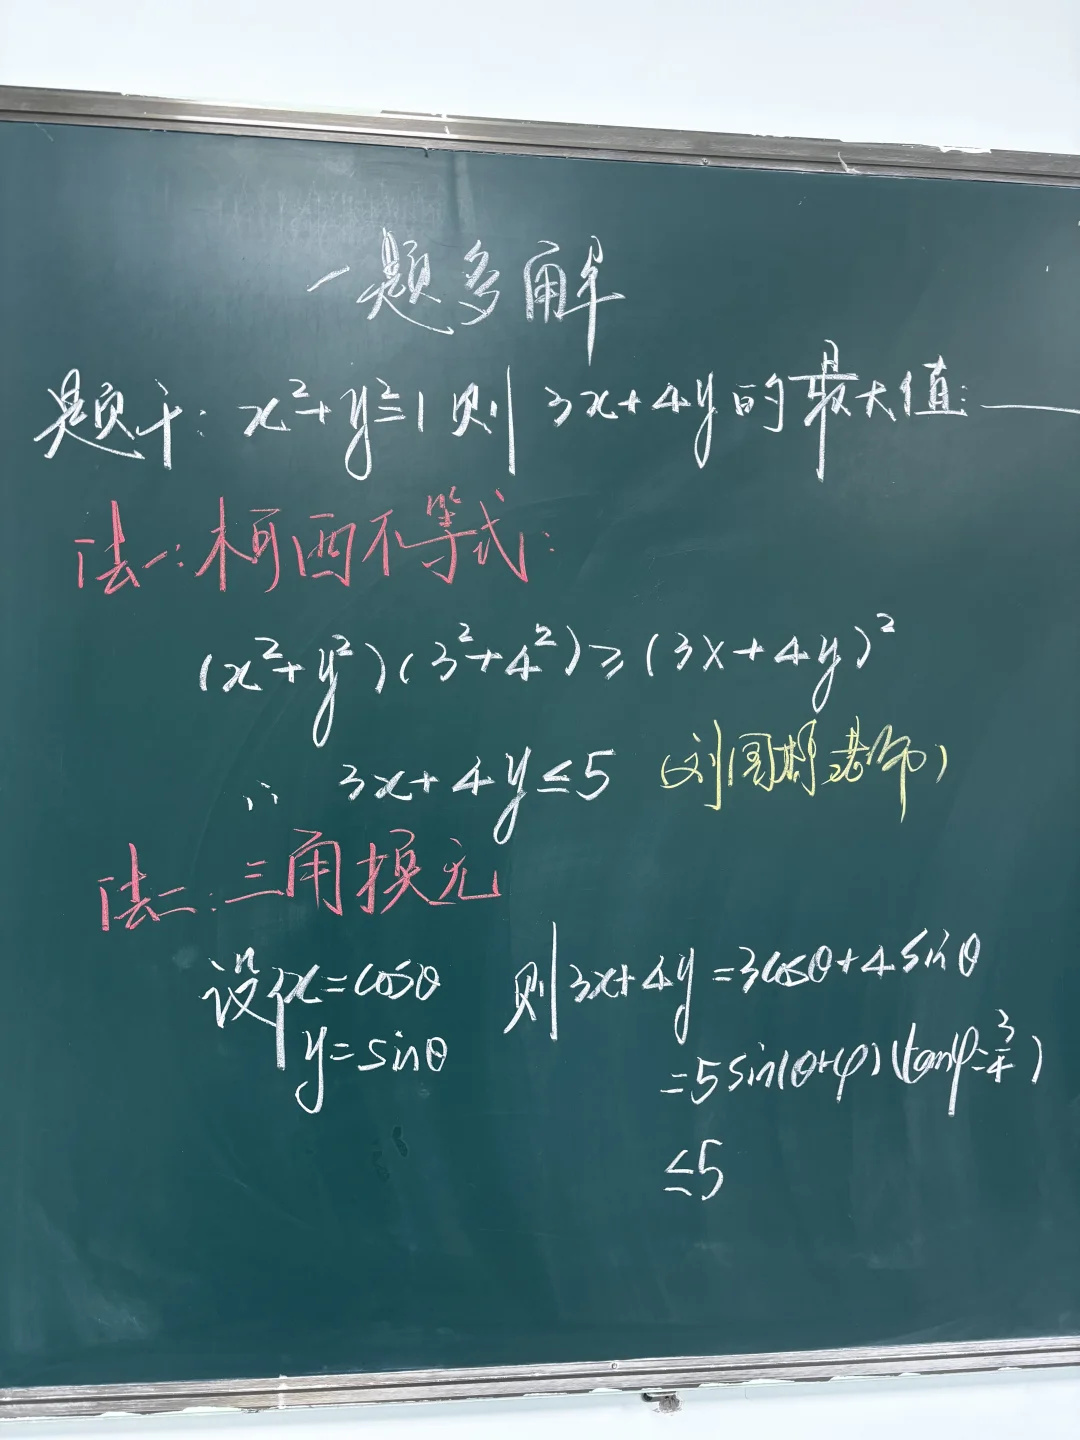 一题多解
题干: x²+y²=1则 3x+4y的最大值:——
法一:柯西不等式:
(x²+y²)(3²+4²)≥(3x+4y)²
∴ 3x+4y≤5 (刘国栋老师)
法二:三角换元
设{x=cosθ 则3x+4y=3cosθ+4sinθ
y=sinθ
=5sin(θ+φ)(tanφ=3/4)
≤5